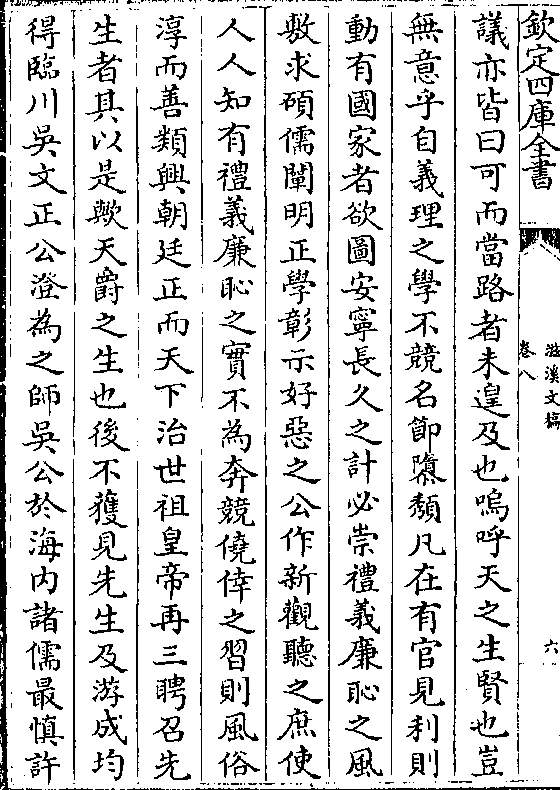 欽定四庫全書
滋溪文稿
卷八
六
議亦皆曰可而當路者未遑及也嗚呼天之生賢也豈
無意乎自義理之學不競名節隳頹凡在有官見利則
動有國家者欲圖安寧長久之計必崇禮義廉恥之風
敷求碩儒闡明正學彰示好惡之公作新觀聽之庶使
人人知有禮義廉恥之實不為奔競僥倖之習則風俗
淳而善類興朝廷正而天下治世祖皇帝再三聘召先
生者具以是歟天爵之生也後不獲見先生及游成均
得臨川吳文正公澄為之師吳公於海內諸儒最慎許